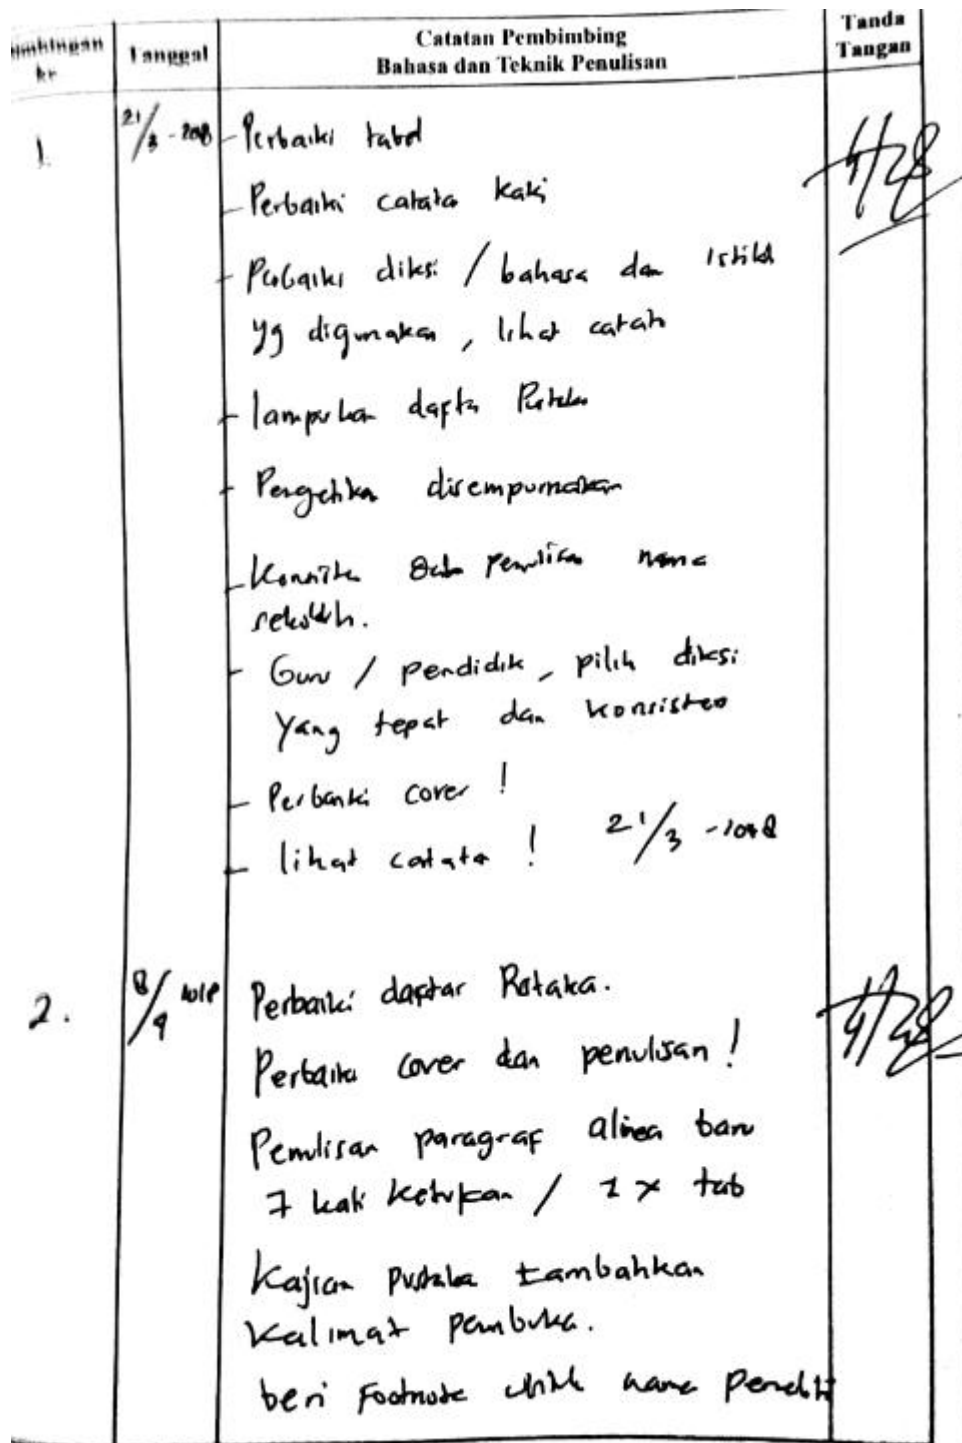 Bimbingan ke
Tanggal
Catatan Pembimbing
Bahasa dan Teknik Penulisan
Tanda
Tangan
1.
21/3 - 2018
- Perbaiki tabel
- Perbaiki catata kaki
- Perbaiki diksi / bahasa dan istilah
yg digunakan, lihat catatan
- lampirkan daftar Pustaka
- Pengetikan disempurnakan
- Konsisten penulisan nama
sekolah.
- Guru / pendidik, pilih diksi
yang tepat dan konsisten
- Perbaiki cover !
- lihat catata ! 21/3 - 2018
2.
8/4 2018
Perbaiki daftar Pustaka.
Perbaiki cover dan penulisan !
Penulisan paragraf alinea baru
7 kali ketukan / 1 x tab
Kajian pustaka tambahkan
kalimat pembuka.
beri Footnote untuk nama peneliti